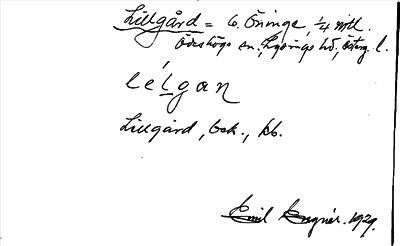 Lillgård = 6, Öninge, 1/4 mtl.
Ödeshögs sn., Lysings hd., Österg. l.
lélgan
Lillgård, bok., kb.
Emil Engnér. 1929.